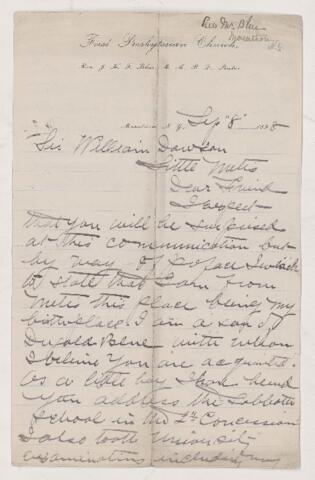 Rev Mr Blue
Marathon
N.Y.
First Presbyterian Church,
Rev. J. H. F. Blue, Pastor
Marathon N.Y. Sep "8" 1898
Sir William Dawson
Little Metis
Dear Friend
I expect
that you will be surprised
at this communication but
by way of preface I wish
to state that I am from
Metis this place being my
birthplace. I am a son of
Dugald Blue with whom
I believe you are acquainted.
As a little boy I have heard
you address the Sabbath
School in the 2nd Concession
I also took University
examinations including my